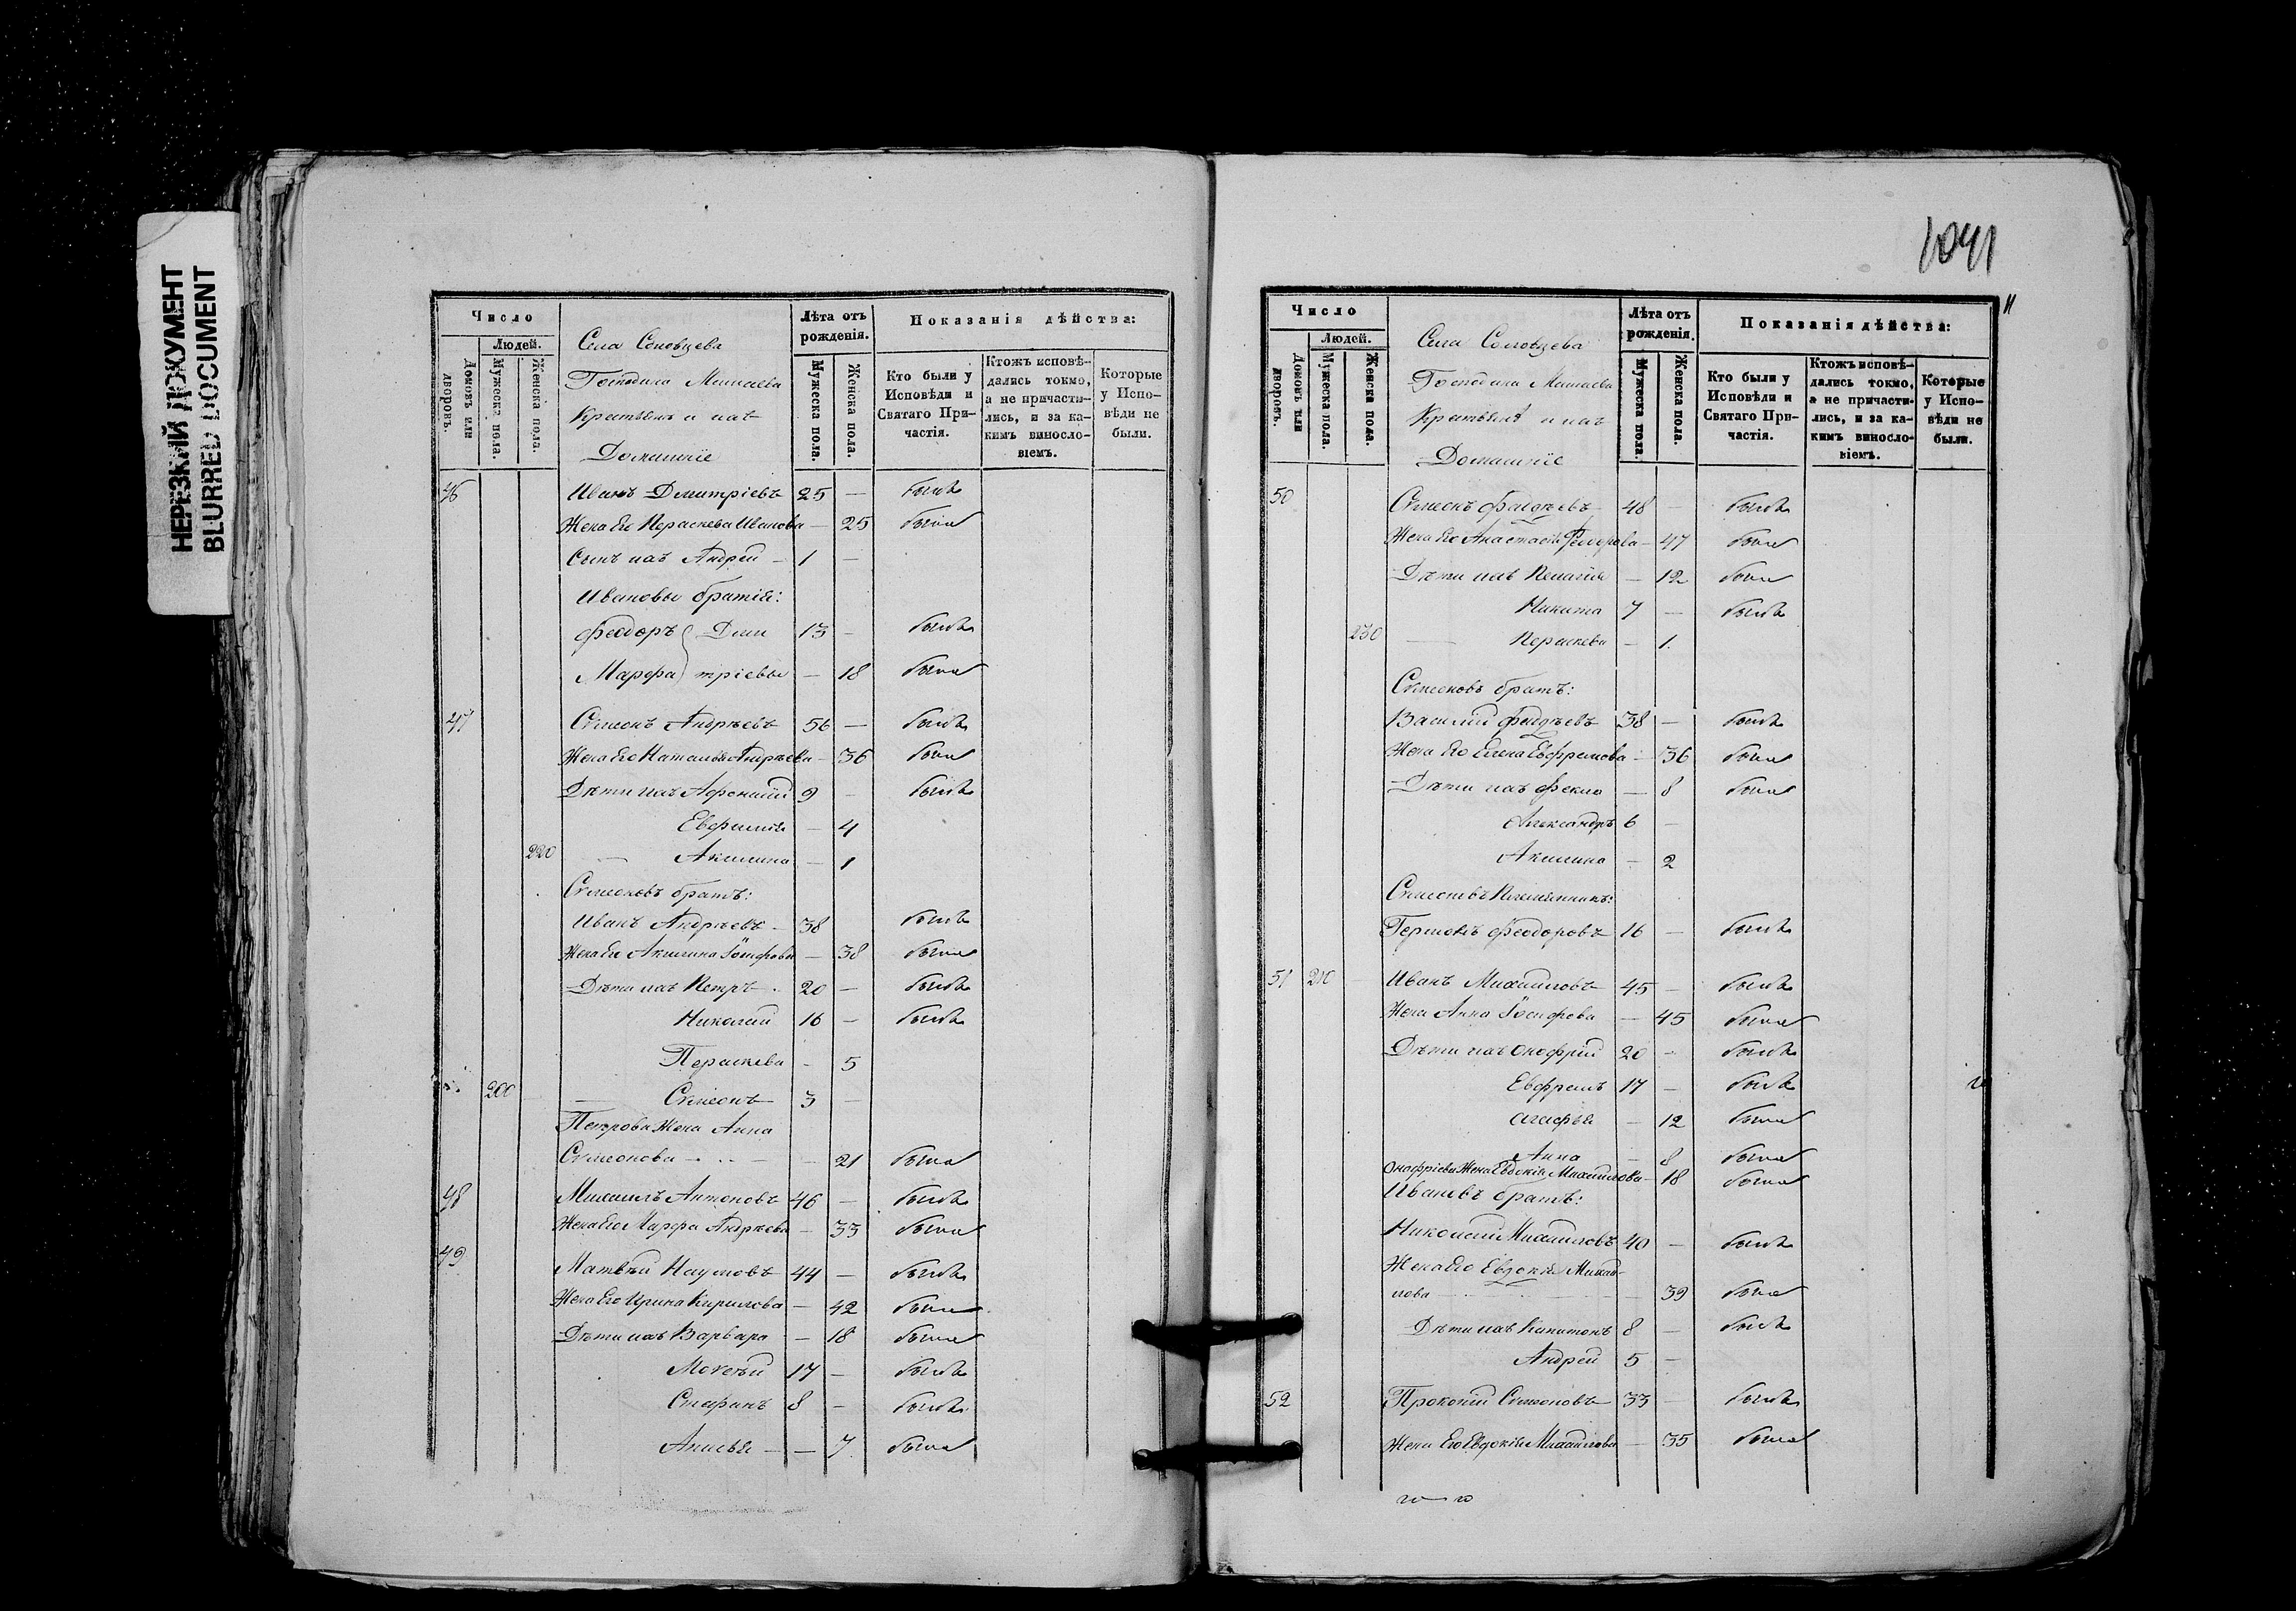 НЕРЕЗКИЙ ДОКУМЕНТ
BLURRED DOCUMENT
Число
Людей.
Домовъ или дворовъ.
Мужеска пола.
Женска пола.
Села Соловцева
Господина
Крестьяне и ихъ
Домашніе
Лѣта отъ рожденія.
Мужеска пола.
Женска пола.
Показанія дѣйства:
Кто были у Исповѣди и Святаго Причастія.
Ктожъ исповѣдались токмо, а не причастились, и за какимъ винословіемъ.
Которые у Исповѣди не были.
46 Иванъ Димитріевъ 25 — былъ
Жена Его Параскева Иванова — 25 была
Сынъ ихъ Андрей — 1 —
Ивановы братія:
Феодоръ Дми 13 — былъ
Марфа тріевы — 18 была
47 Сѵмеонъ Андреевъ 56 — былъ
Жена Его Наталья Андреева — 36 была
Дѣти ихъ Афонасій 9 — былъ
Евфимія — 4
220 — Акилина — 1
Сѵмеоновъ братъ:
Иванъ Андреевъ — 38 былъ
Жена Его Акилина Іосифова — 38 была
Дѣти ихъ Петръ 20 — былъ
Николай 16 — былъ
Параскева - 5
200 — Сѵмеонъ 3 —
Петрова Жена Анна
Сѵмеонова — 21 была
48 Михаилъ Антоновъ 46 — былъ
Жена Его Марфа Андреева — 33 была
49 Матвѣй Наумовъ 44 — былъ
Жена Его Ирина Кирилова — 42 была
Дѣти ихъ Варвара — 18 была
Мокѣй 17 — былъ
Стефанъ 8 - былъ
Анисья — — 7 была
1041
11
Число
Людей.
Домовъ или дворовъ.
Мужеска пола.
Женска пола.
Села Соловцева
Господина
Крестьяне и ихъ
Домашніе
Лѣта отъ рожденія.
Мужеска пола.
Женска пола.
Показанія дѣйства:
Кто были у Исповѣди и Святаго Причастія.
Ктожъ исповѣдались токмо, а не причастились, и за какимъ винословіемъ.
Которые у Исповѣди не были.
50 Сѵмеонъ Фаддѣевъ 48 — былъ
Жена Его Анастасія Феодорова — 47 была
Дѣти ихъ Пелагія — 12 была
Никита 7 — былъ
230 — Параскева — 1.
Сѵмеоновъ братъ:
Василій Фаддѣевъ 38 — былъ
Жена Его Елена Евфремова - 36 была
Дѣти ихъ Фекла — 8 была
Александръ 6 —
Акилина - 2
Сѵмеоновъ Племянникъ:
Феодоровъ 16 — былъ
51 210 Иванъ Михайловъ 45 — былъ
Жена Анна Іосифова — 45 была
Дѣти ихъ Онофрій 20 - былъ
Евфремъ 17 — былъ
Агафья — 12 была
Анна — 8 была
Онофріева Жена Евдокія Михайлова — 18 была
Ивановъ братъ:
Николай Михайловъ 40 — былъ
Жена Его Евдокія Михай-
лова — 39 была
Дѣти ихъ Капитонъ 8 — былъ
Андрей 5 —
52 Прокопій Сѵмеоновъ 33 — былъ
Жена Его Евдокія Михайлова — 35 была